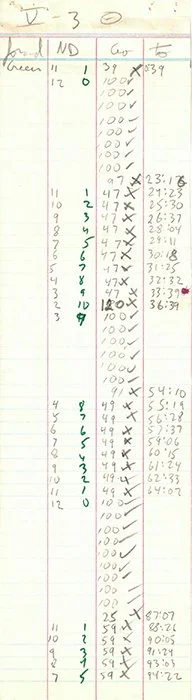 V-3 0
ND Go to
Green 11 1 39 x 039
12 0 100 ✓
100 ✓
100 ✓
100 ✓
100 ✓
100 ✓
100 ✓
97 x 23:16
11 1 47 x 24:23
10 2 47 x 25:30
9 3 47 x 26:37
8 4 47 x 28:04
7 5 47 x 29:11
6 6 47 x 30:18
5 7 47 x 31:25
4 8 47 x 32:32
3 9 47 x 33:39
2 10 120 x 36:39
3 9 100 ✓
100 ✓
100 ✓
100 ✓
100 ✓
91 x 54:10
4 8 49 x 55:19
5 7 49 x 56:28
6 6 49 x 57:37
7 5 49 x 59:06
8 4 49 x 60:15
9 3 49 x 61:24
10 2 49 x 62:33
11 1 49 x 64:02
12 0 100 ✓
100 ✓
100 ✓
100 ✓
100 ✓
100 ✓
100 ✓
100 ✓
25 x 87:07
11 1 59 x 88:26
10 2 59 x 90:05
9 3 59 x 91:24
8 4 59 x 93:03
7 5 59 x 94:22